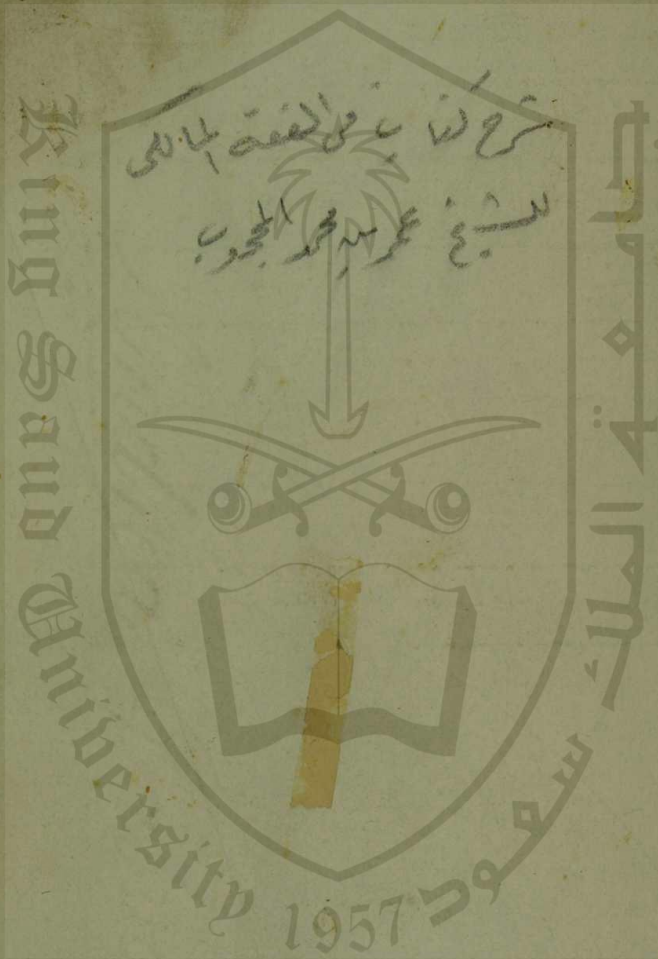 شرح كتاب في الفقه المالكي
للشيخ عمر بن محمد المجذوب
King Saud University
1957
جامعة الملك سعود